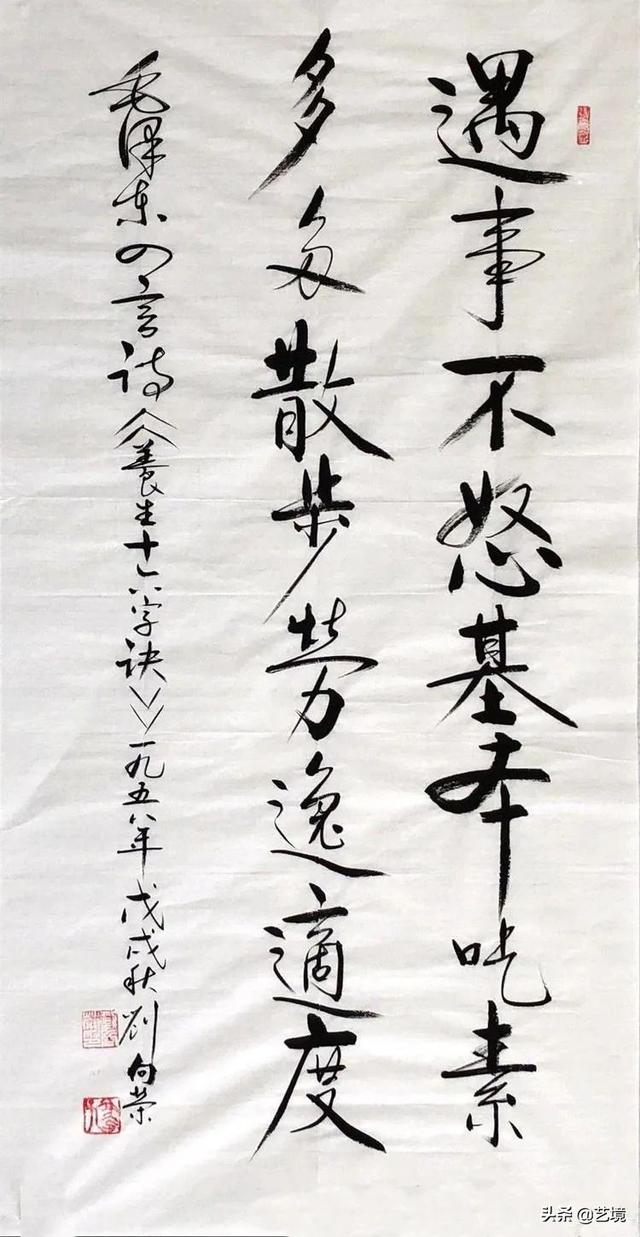 遇事不怒基本吃素
多多散步劳逸適度
毛泽东四言诗《养生十六字诀》一九五八年戊戌秋刘向荣
头条 @艺境